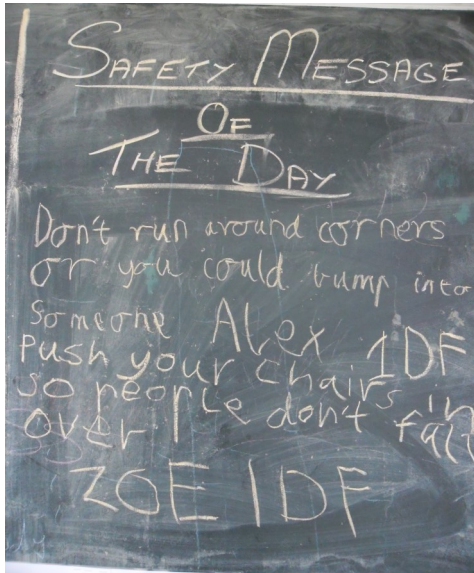 SAFETY MESSAGE
OF
THE DAY
Don't run around corners
or you could bump into
someone Alex 1DF
Push your chairs in
so people don't fall
over
ZOE 1DF